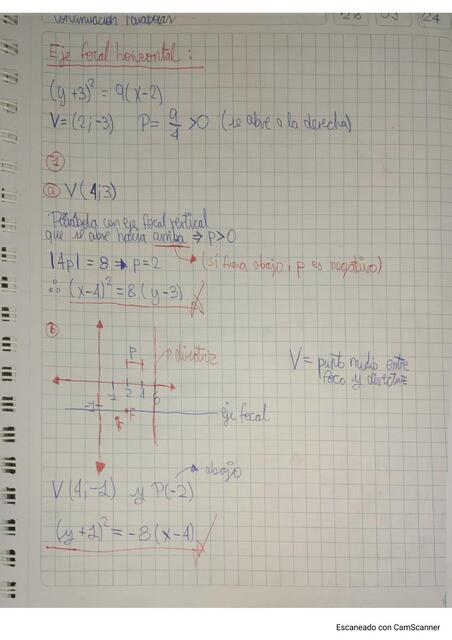 continuación Parábolas 28 03 24
Eje focal horizontal:
(y+3)² = 9(x-2)
V=(2;-3) P= 9/4 >0 (se abre a la derecha)
1
a) V(4;3)
Parábola con eje focal vertical
que se abre hacia arriba ⇒ p>0
|4p| = 8 → p=2 (sí fuera abajo, p es negativo)
∴ (x-4)² = 8(y-3)
b)
P
directriz
V= punto medio entre
foco y directriz
1 2 4 6
-1
F
eje focal
abajo
V(4;-1) y P(-2)
(y+1)² = -8(x-4)
Escaneado con CamScanner